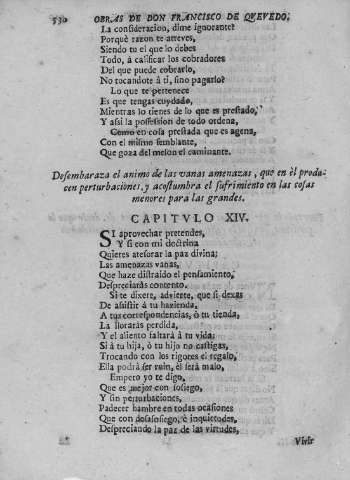 530 OBRAS DE DON FRANCISCO DE QUEVEDO.
La consideracion, dime ignorante?
Porquè razon te atreves,
Siendo tu el que lo debes
Todo, à calificar los cobradores
Del que puede cobrarlo,
No tocandote à ti, sino pagarlo?
Lo que te pertenece
Es que tengas cuydado,
Mientras lo tienes de lo que es prestado,
Y assi la possession de todo ordena,
Como en cosa prestada que es agena,
Con el mismo semblante,
Que goza del meson el caminante.
Desembaraza el animo de las vanas amenazas, que en èl produ-
cen perturbaciones, y acostumbra el sufrimiento en las cosas
menores para las grandes.
CAPITVLO XIV.
SI aprovechar pretendes,
Y si con mi doctrina
Quieres atesorar la paz divina;
Las amenazas vanas,
Que haze distraido el pensamiento,
Despreciaràs contento.
Si te dixere, advierte, que si dexas
De assistir à tu hazienda,
A tus correspondencias, ò tu tienda,
La lloraràs perdida,
Y el aliento faltarà à tu vida;
Si à tu hija, ò tu hijo no castigas,
Trocando con los rigores el regalo,
Ella podrà ser ruin, èl serà malo,
Empero yo te digo,
Que es mejor con sosiego,
Y sin perturbaciones,
Padecer hambre en todas ocasiones
Que con desasosiego, è inquietudes,
Despreciando la paz de las virtudes,
Vivir